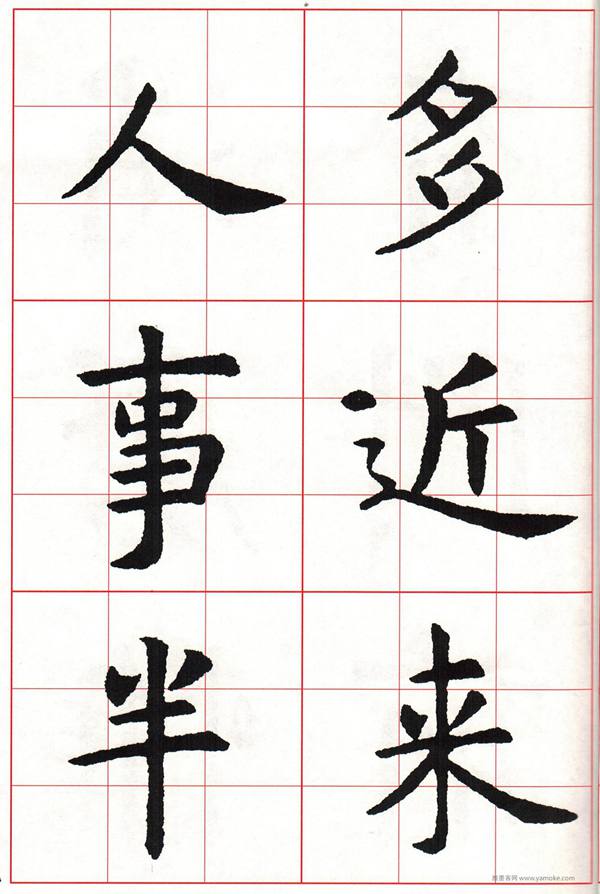 多近来
人事半
雅墨客网 www.yamoke.com